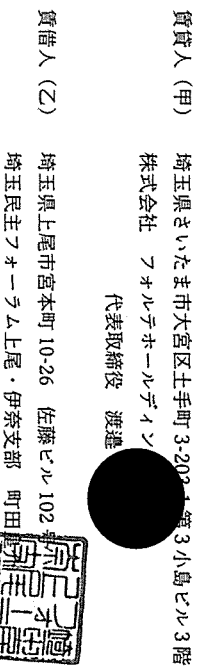 賃貸人（甲） 埼玉県さいたま市大宮区土手町3-202 第3小島ビル3階
株式会社 フォルテホールディン
代表取締役 渡邉
賃借人（乙） 埼玉県上尾市宮本町10-26 佐藤ビル102
埼玉民主フォーラム上尾・伊奈支部 町田